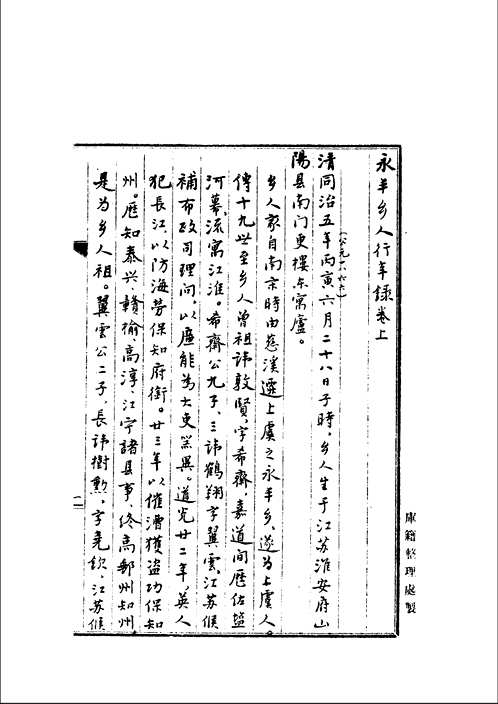 永丰乡人行年录卷上
清同治五年丙寅(公元一八六六)六月二十八日子時,乡人生于江苏淮安府山
陽县南门更樓东寓廬。
乡人家自南宗時由慈溪遷上虞之永丰乡,遂为上虞人。
傳十九世至乡人曾祖諱敦賢,字希齋,嘉道间歷佐盐
河幕,流寓江淮。希齋公九子,三諱鶴翔字翼雲,江苏候
補布政司理问,以廉能为大吏器異。道光廿二年,英人
犯長江,以防海勞保知府銜。廿三年以催漕獲盜功保知
州。歷知泰兴、贛榆、高淳、江宁諸县事,终高郵州知州,
是为乡人祖。翼雲公二子,長諱樹勳,字堯欽,江苏候
庫籍整理處製
一